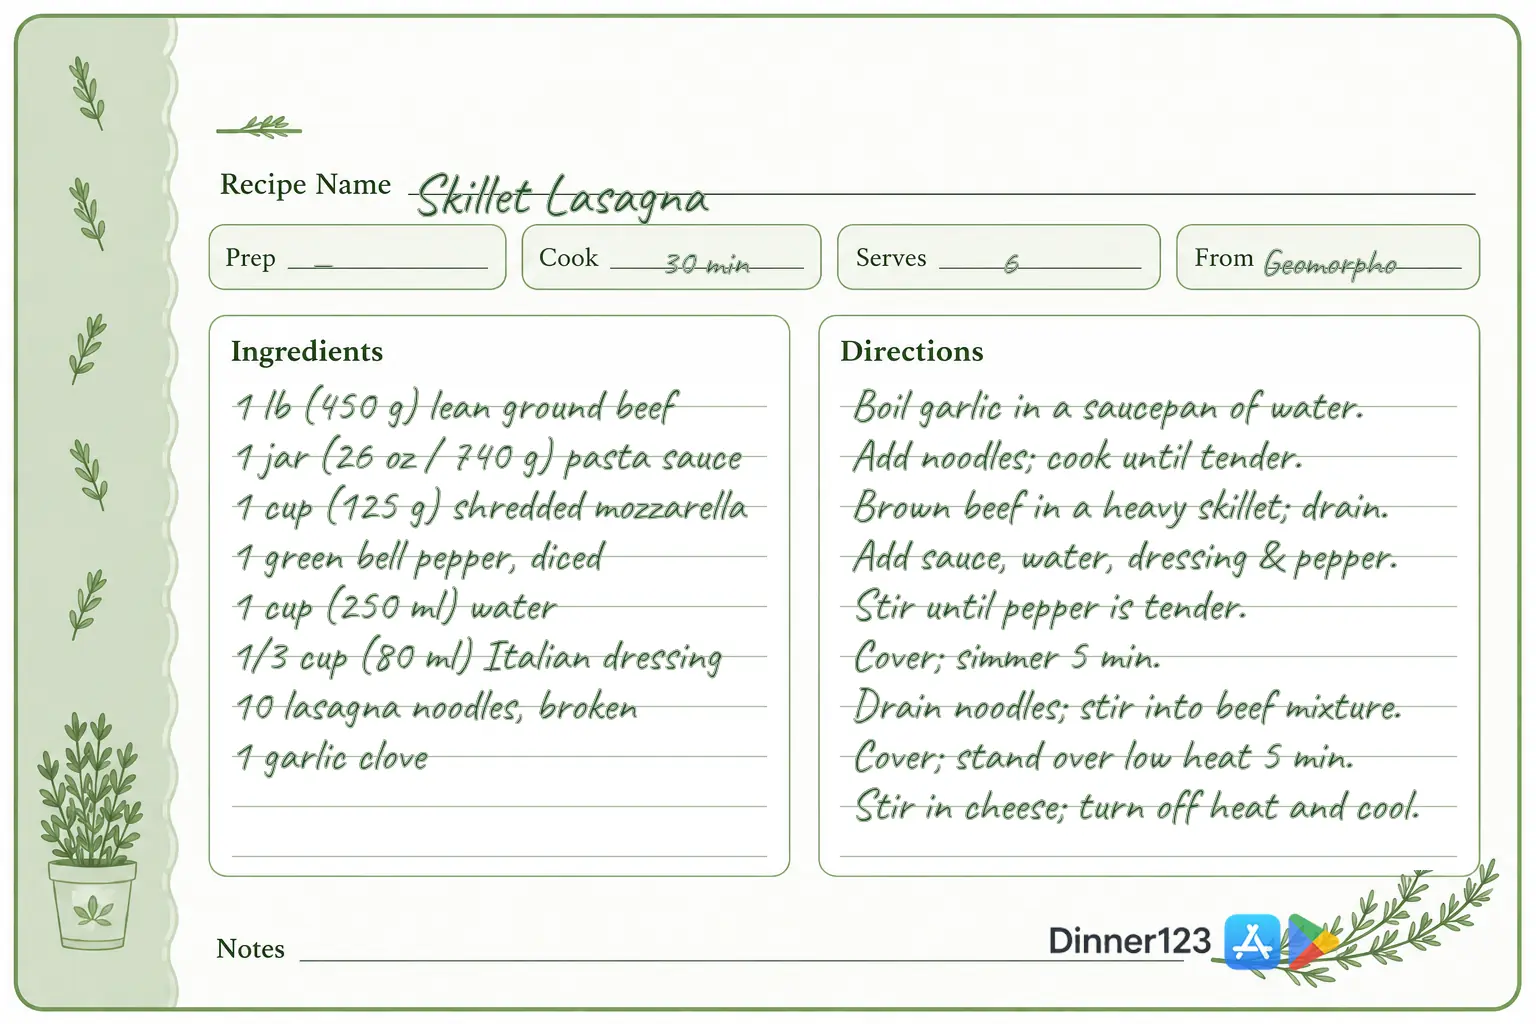 Recipe Name Skillet Lasagna
Prep —
Cook 30 min
Serves 6
From Geomorpho
Ingredients
1 lb (450 g) lean ground beef
1 jar (26 oz / 740 g) pasta sauce
1 cup (125 g) shredded mozzarella
1 green bell pepper, diced
1 cup (250 ml) water
1/3 cup (80 ml) Italian dressing
10 lasagna noodles, broken
1 garlic clove
Directions
Boil garlic in a saucepan of water.
Add noodles; cook until tender.
Brown beef in a heavy skillet; drain.
Add sauce, water, dressing & pepper.
Stir until pepper is tender.
Cover; simmer 5 min.
Drain noodles; stir into beef mixture.
Cover; stand over low heat 5 min.
Stir in cheese; turn off heat and cool.
Notes
Dinner123